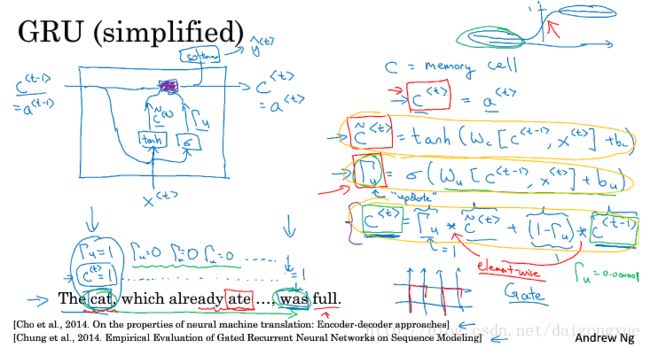 GRU (simplified)
softmax
ŷ^<t>
c^<t-1>
= a^<t-1>
c̃^<t>
Γu
tanh
σ
x^<t>
c^<t>
= a^<t>
C = memory cell
c^<t> = a^<t>
c̃^<t> = tanh (Wc [c^<t-1>, x^<t>] + bc)
Γu = σ (Wu [c^<t-1>, x^<t>] + bu)
"update"
c^<t> = Γu * c̃^<t> + (1-Γu) * c^<t-1>
element-wise
Γu = 0.000001
Gate
Γu=1
Γu=0 Γu=0 Γu=0 .....
c^<t>=1 ..... =1
The cat, which already ate ...., was full.
[Cho et al., 2014. On the properties of neural machine translation: Encoder-decoder approaches]
[Chung et al., 2014. Empirical Evaluation of Gated Recurrent Neural Networks on Sequence Modeling]
Andrew Ng